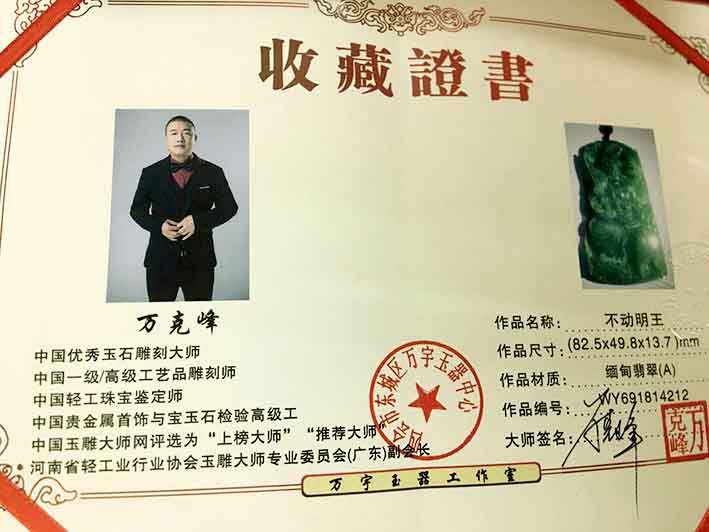 收藏證書
万克峰
中国优秀玉石雕刻大师
中国一级/高级工艺品雕刻师
中国轻工珠宝鉴定师
中国贵金属首饰与宝玉石检验高级工
中国玉雕大师网评选为“上榜大师”“推荐大师”
·河南省轻工业行业协会玉雕大师专业委员会(广东)副会长
作品名称: 不动明王
作品尺寸: (82.5x49.8x13.7)mm
作品材质: 缅甸翡翠(A)
作品编号: WY691814212
大师签名:
万克峰
四会市东城区万宇玉器中心
万宇玉器工作室